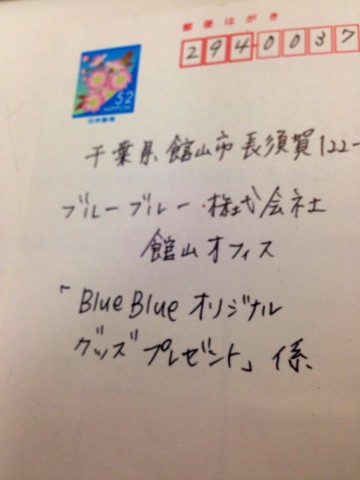 郵便はがき
2940037
52
日本郵便
千葉県館山市長須賀122-
ブルーブルー株式会社
館山オフィス
「BlueBlueオリジナル
グッズプレゼント」係